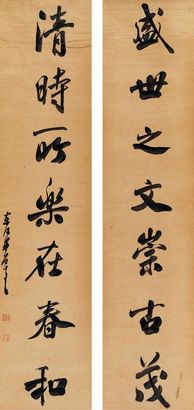 盛世之文崇古茂
清時所樂在春和